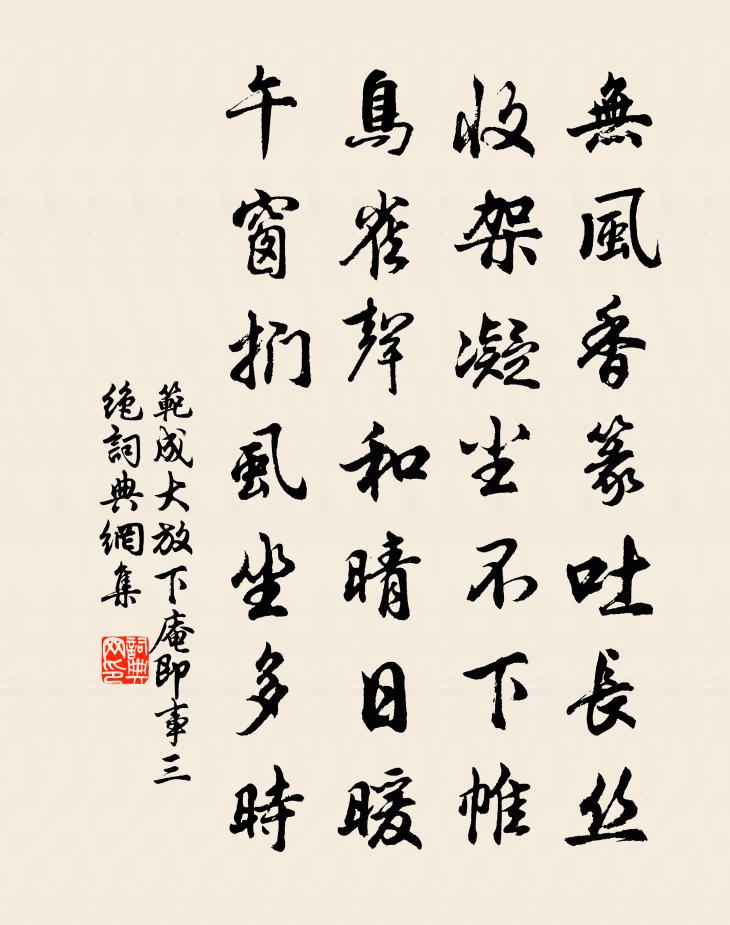 無風香篆吐長丝
收架凝尘不下帷
鳥雀聲和晴日暖
午窗捫虱坐多時
範成大放下庵即事三
絶詞典網集
詞典
网印